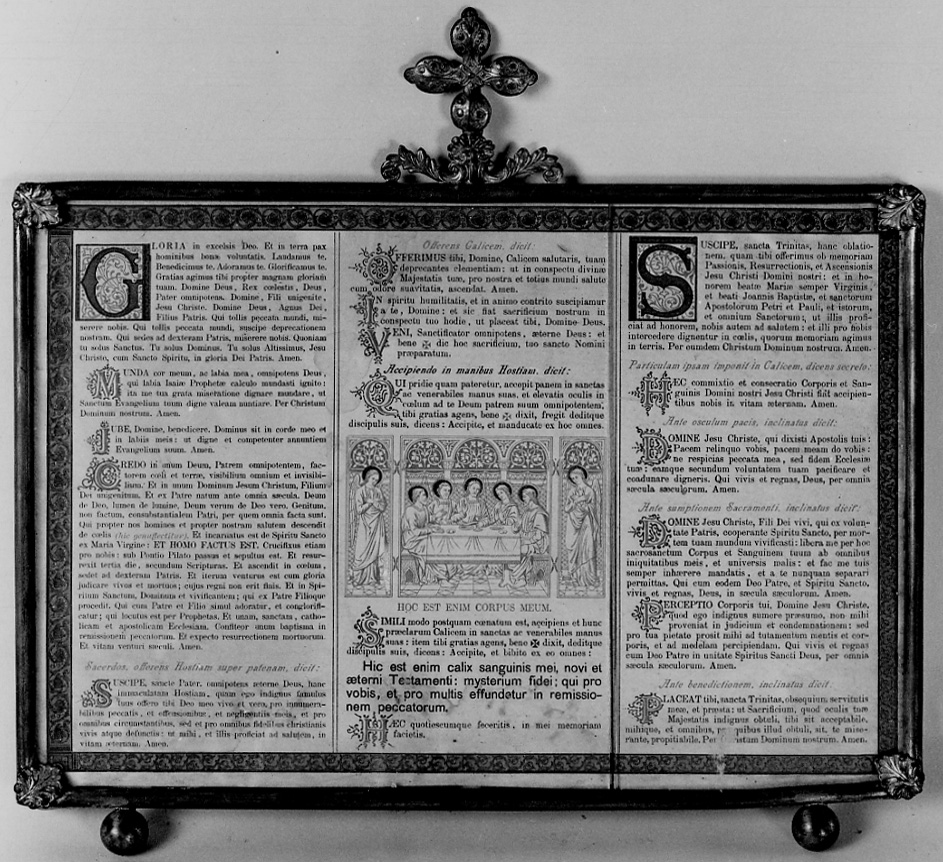 GLORIA in excelsis Deo. Et in terra pax
hominibus bonæ voluntatis. Laudamus te.
Benedicimus te. Adoramus te. Glorificamus te.
Gratias agimus tibi propter magnam gloriam
tuam. Domine Deus, Rex cœlestis, Deus,
Pater omnipotens. Domine, Fili unigenite,
Jesu Christe. Domine Deus, Agnus Dei,
Filius Patris. Qui tollis peccata mundi, mi-
serere nobis. Qui tollis peccata mundi, suscipe deprecationem
nostram. Qui sedes ad dexteram Patris, miserere nobis. Quoniam
tu solus Sanctus. Tu solus Dominus. Tu solus Altissimus, Jesu
Christe, cum Sancto Spiritu, in gloria Dei Patris. Amen.
MUNDA cor meum, ac labia mea, omnipotens Deus,
qui labia Isaiæ Prophetæ calculo mundasti ignito:
ita me tua grata miseratione dignare mundare, ut
Sanctum Evangelium tuum digne valeam nuntiare. Per Christum
Dominum nostrum. Amen.
JUBE, Domine, benedicere. Dominus sit in corde meo et
in labiis meis: ut digne et competenter annuntiem
Evangelium suum. Amen.
CREDO in unum Deum, Patrem omnipotentem, fac-
torem cœli et terræ, visibilium omnium et invisibi-
lium. Et in unum Dominum Jesum Christum, Filium
Dei unigenitum. Et ex Patre natum ante omnia sæcula. Deum
de Deo, lumen de lumine, Deum verum de Deo vero. Genitum,
non factum, consubstantialem Patri, per quem omnia facta sunt.
Qui propter nos homines et propter nostram salutem descendit
de cœlis (hic genuflectitur). Et incarnatus est de Spiritu Sancto
ex Maria Virgine: ET HOMO FACTUS EST. Crucifixus etiam
pro nobis: sub Pontio Pilato passus et sepultus est. Et resur-
rexit tertia die, secundum Scripturas. Et ascendit in cœlum,
sedet ad dexteram Patris. Et iterum venturus est cum gloria
judicare vivos et mortuos; cujus regni non erit finis. Et in Spi-
ritum Sanctum, Dominum et vivificantem; qui ex Patre Filioque
procedit. Qui cum Patre et Filio simul adoratur, et conglorifi-
catur; qui locutus est per Prophetas. Et unam, sanctam, catho-
licam et apostolicam Ecclesiam. Confiteor unum baptisma in
remissionem peccatorum. Et expecto resurrectionem mortuorum.
Et vitam venturi sæculi. Amen.
Sacerdos, offerens Hostiam super patenam, dicit:
SUSCIPE, sancte Pater, omnipotens æterne Deus, hanc
immaculatam Hostiam, quam ego indignus famulus
tuus offero tibi Deo meo vivo et vero, pro innumera-
bilibus peccatis, et offensionibus, et negligentiis meis, et pro
omnibus circumstantibus, sed et pro omnibus fidelibus christianis
vivis atque defunctis: ut mihi, et illis proficiat ad salutem, in
vitam æternam. Amen.
Offerens Calicem, dicit:
OFFERIMUS tibi, Domine, Calicem salutaris, tuam
deprecantes clementiam: ut in conspectu divinæ
Majestatis tuæ, pro nostra et totius mundi salute
cum odore suavitatis, ascendat. Amen.
IN spiritu humilitatis, et in animo contrito suscipiamur
a te, Domine: et sic fiat sacrificium nostrum in
conspectu tuo hodie, ut placeat tibi, Domine Deus.
VENI, Sanctificator omnipotens, æterne Deus: et
bene ✠ dic hoc sacrificium, tuo sancto Nomini
præparatum.
Accipiendo in manibus Hostiam, dicit:
QUI pridie quam pateretur, accepit panem in sanctas
ac venerabiles manus suas, et elevatis oculis in
cœlum ad te Deum patrem suum omnipotentem,
tibi gratias agens, bene ✠ dixit, fregit deditque
discipulis suis, dicens: Accipite, et manducate ex hoc omnes.
HOC EST ENIM CORPUS MEUM.
SIMILI modo postquam cœnatum est, accipiens et hunc
præclarum Calicem in sanctas ac venerabiles manus
suas: item tibi gratias agens, bene ✠ dixit, deditque
discipulis suis, dicens: Accipite, et bibite ex eo omnes:
Hic est enim calix sanguinis mei, novi et
æterni Testamenti: mysterium fidei; qui pro
vobis, et pro multis effundetur in remissio-
nem peccatorum.
HÆC quotiescumque feceritis, in mei memoriam
facietis.
SUSCIPE, sancta Trinitas, hanc oblatio-
nem, quam tibi offerimus ob memoriam
Passionis, Resurrectionis, et Ascensionis
Jesu Christi Domini nostri: et in ho-
norem beatæ Mariæ semper Virginis,
et beati Joannis Baptistæ, et sanctorum
Apostolorum Petri et Pauli, et istorum,
et omnium Sanctorum; ut illis profi-
ciat ad honorem, nobis autem ad salutem: et illi pro nobis
intercedere dignentur in cœlis, quorum memoriam agimus
in terris. Per eumdem Christum Dominum nostrum. Amen.
Particulam ipsam imponit in Calicem, dicens secreto:
HÆC commixtio et consecratio Corporis et San-
guinis Domini nostri Jesu Christi fiat accipien-
tibus nobis in vitam æternam. Amen.
Ante osculum pacis, inclinatus dicit:
DOMINE Jesu Christe, qui dixisti Apostolis tuis:
Pacem relinquo vobis, pacem meam do vobis:
ne respicias peccata mea, sed fidem Ecclesiæ
tuæ: eamque secundum voluntatem tuam pacificare et
coadunare digneris. Qui vivis et regnas, Deus, per omnia
sæcula sæculorum. Amen.
Ante sumptionem Sacramenti, inclinatus dicit:
DOMINE Jesu Christe, Fili Dei vivi, qui ex volun-
tate Patris, cooperante Spiritu Sancto, per mor-
tem tuam mundum vivificasti: libera me per hoc
sacrosanctum Corpus et Sanguinem tuum ab omnibus
iniquitatibus meis, et universis malis: et fac me tuis
semper inhærere mandatis, et a te nunquam separari
permittas. Qui cum eodem Deo Patre, et Spiritu Sancto,
vivis et regnas, Deus, in sæcula sæculorum. Amen.
PERCEPTIO Corporis tui, Domine Jesu Christe,
quod ego indignus sumere præsumo, non mihi
proveniat in judicium et condemnationem: sed
pro tua pietate prosit mihi ad tutamentum mentis et cor-
poris, et ad medelam percipiendam. Qui vivis et regnas
cum Deo Patre in unitate Spiritus Sancti Deus, per omnia
sæcula sæculorum. Amen.
Ante benedictionem, inclinatus dicit:
PLACEAT tibi, sancta Trinitas, obsequium servitutis
meæ, et præsta: ut Sacrificium, quod oculis tuæ
Majestatis indignus obtuli, tibi sit acceptabile,
mihique, et omnibus, pro quibus illud obtuli, sit, te mise-
rante, propitiabile. Per istum Dominum nostrum. Amen.